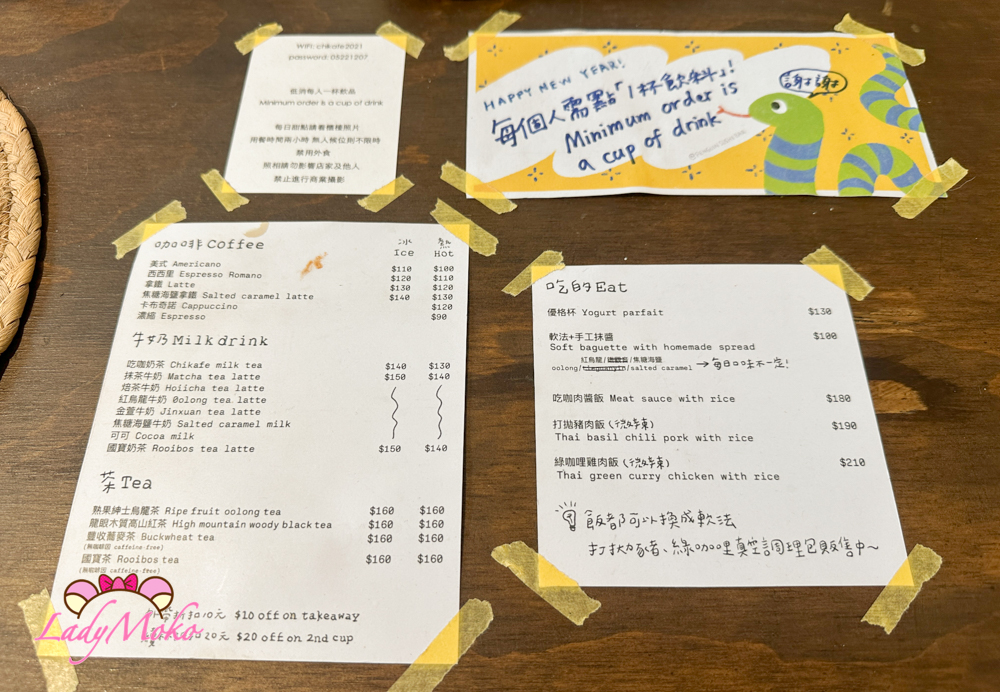 WiFi: chikafe2021
password: 05221207
低消每人一杯飲品
Minimum order is a cup of drink
每日甜點請看櫃檯照片
用餐時間兩小時 無人候位則不限時
禁用外食
照相請勿影響店家及他人
禁止進行商業攝影
HAPPY NEW YEAR!
每個人需點「1杯飲料」!
Minimum order is
a cup of drink
謝謝
咖啡 Coffee 冰 Ice 熱 Hot
美式 Americano $110 $100
西西里 Espresso Romano $120 $110
拿鐵 Latte $130 $120
焦糖海鹽拿鐵 Salted caramel latte $140 $130
卡布奇諾 Cappuccino $120
濃縮 Espresso $90
牛奶 Milk drink
吃咖奶茶 Chikafe milk tea $140 $130
抹茶牛奶 Matcha tea latte $150 $140
焙茶牛奶 Hoiicha tea latte
紅烏龍牛奶 Oolong tea latte
金萱牛奶 Jinxuan tea latte
焦糖海鹽牛奶 Salted caramel milk
可可 Cocoa milk
國寶奶茶 Rooibos tea latte $150 $140
茶 Tea
熟果紳士烏龍茶 Ripe fruit oolong tea $160 $160
龍眼木質高山紅茶 High mountain woody black tea $160 $160
豐收蕎麥茶 Buckwheat tea $160 $160
(無咖啡因 caffeine free)
國寶茶 Rooibos tea $160 $160
(無咖啡因 caffeine free)
折扣10元 $10 off on takeaway
20元 $20 off on 2nd cup
LadyMoko
吃的 Eat
優格杯 Yogurt parfait $130
軟法+手工抹醬 $100
Soft baguette with homemade spread
紅烏龍/鐵觀音/焦糖海鹽
oolong/tieguanyin/salted caramel →每日口味不一定!
吃咖肉醬飯 Meat sauce with rice $180
打拋豬肉飯 (微辣) $190
Thai basil chili pork with rice
綠咖哩雞肉飯 (微辣) $210
Thai green curry chicken with rice
飯都可以換成軟法
打拋豬、綠咖哩真空調理包販售中~